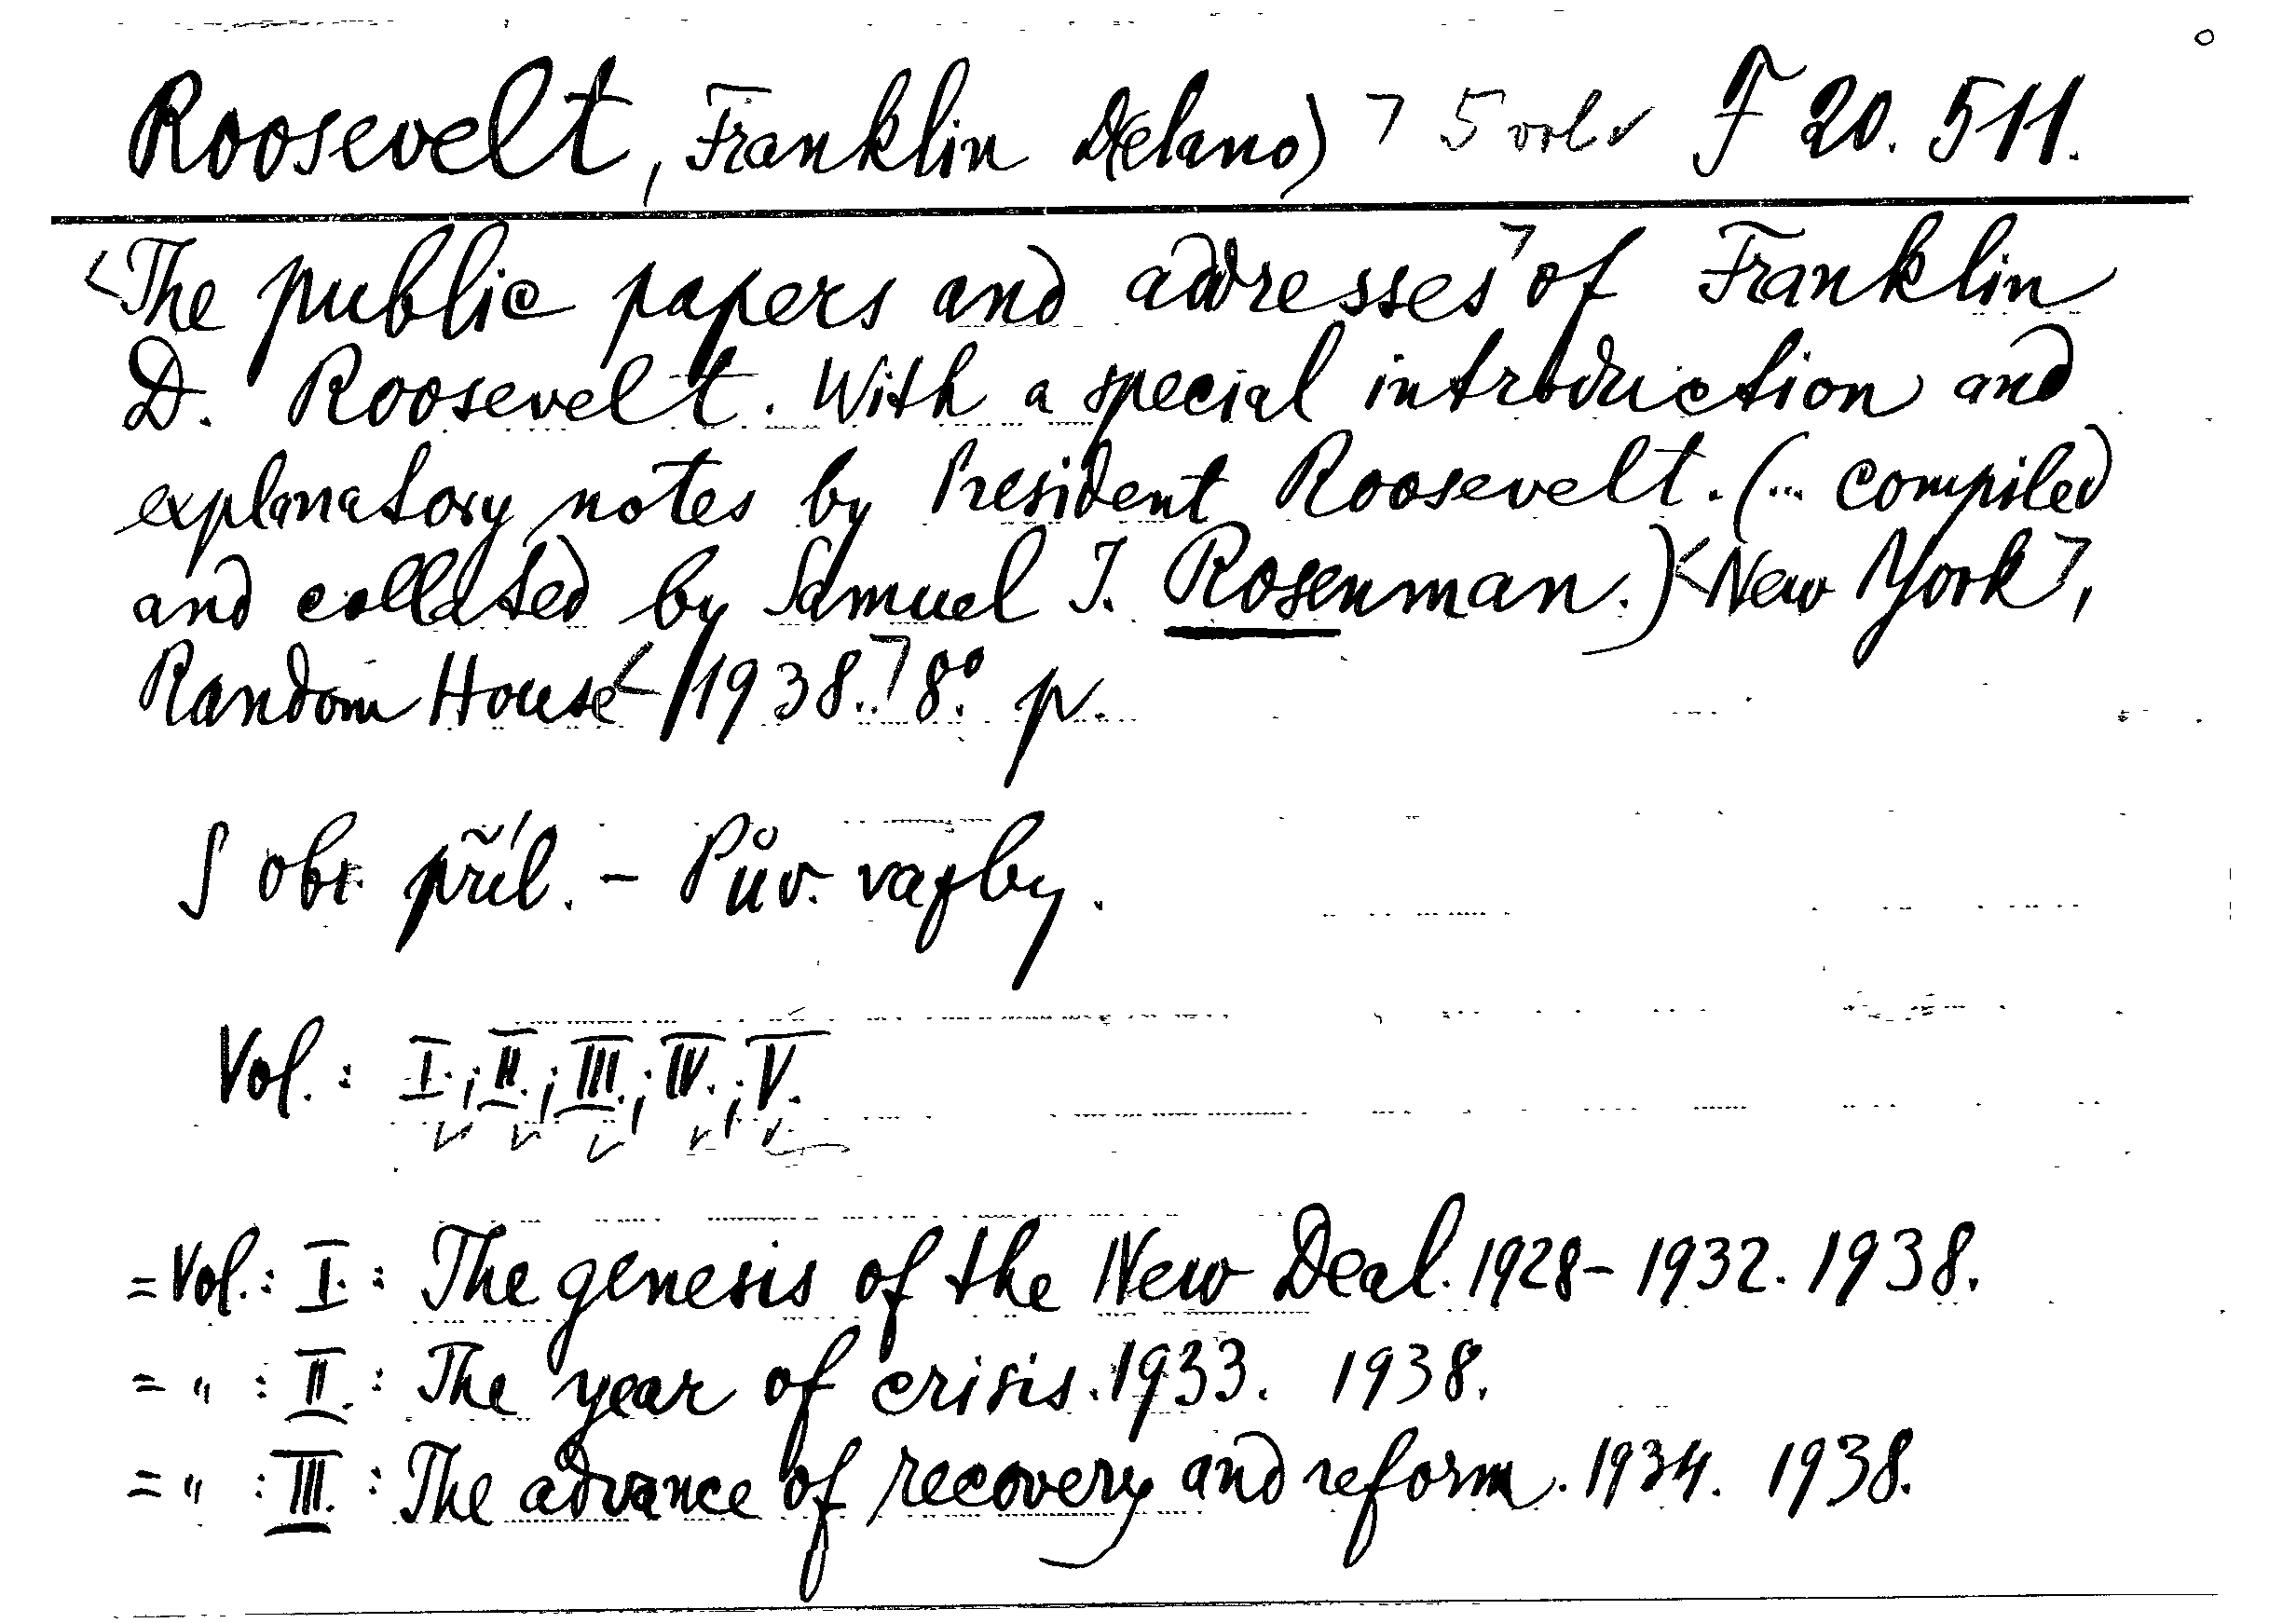 Roosevelt, Franklin D(elano) > 5 vol. F 20.511.
<The public papers and addresses> of Franklin
D. Roosevelt. With a special introduction and
explanatory notes by President Roosevelt. (... compiled
and collated by Samuel I. Rosenman.) <New York>,
Random House <1938.> 8°. p.
S obr. příl. - Pův. vazby.
Vol.: I.; II.; III.; IV.; V.
= Vol.: I.: The genesis of the New Deal. 1928-1932. 1938.
= " : II.: The year of crisis. 1933. 1938.
= " : III.: The advance of recovery and reform. 1934. 1938.